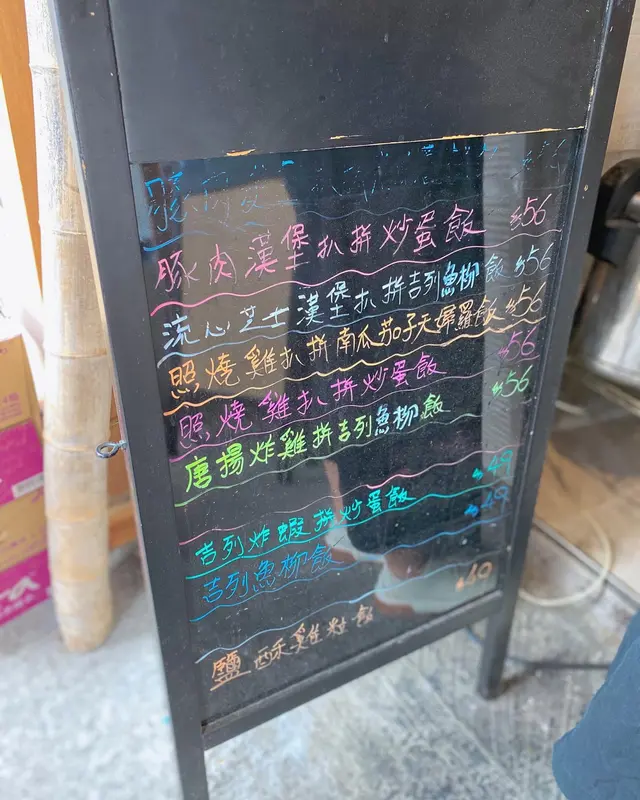 豚肉漢堡扒拼炒蛋飯 $56
流心芝士漢堡扒拼吉列魚柳飯 $56
照燒雞扒拼南瓜茄子天婦羅飯 $56
照燒雞扒拼炒蛋飯 $56
唐揚炸雞拼吉列魚柳飯 $56
吉列炸蝦拼炒蛋飯 $49
吉列魚柳飯 $49
鹽酥雞粒飯 $40